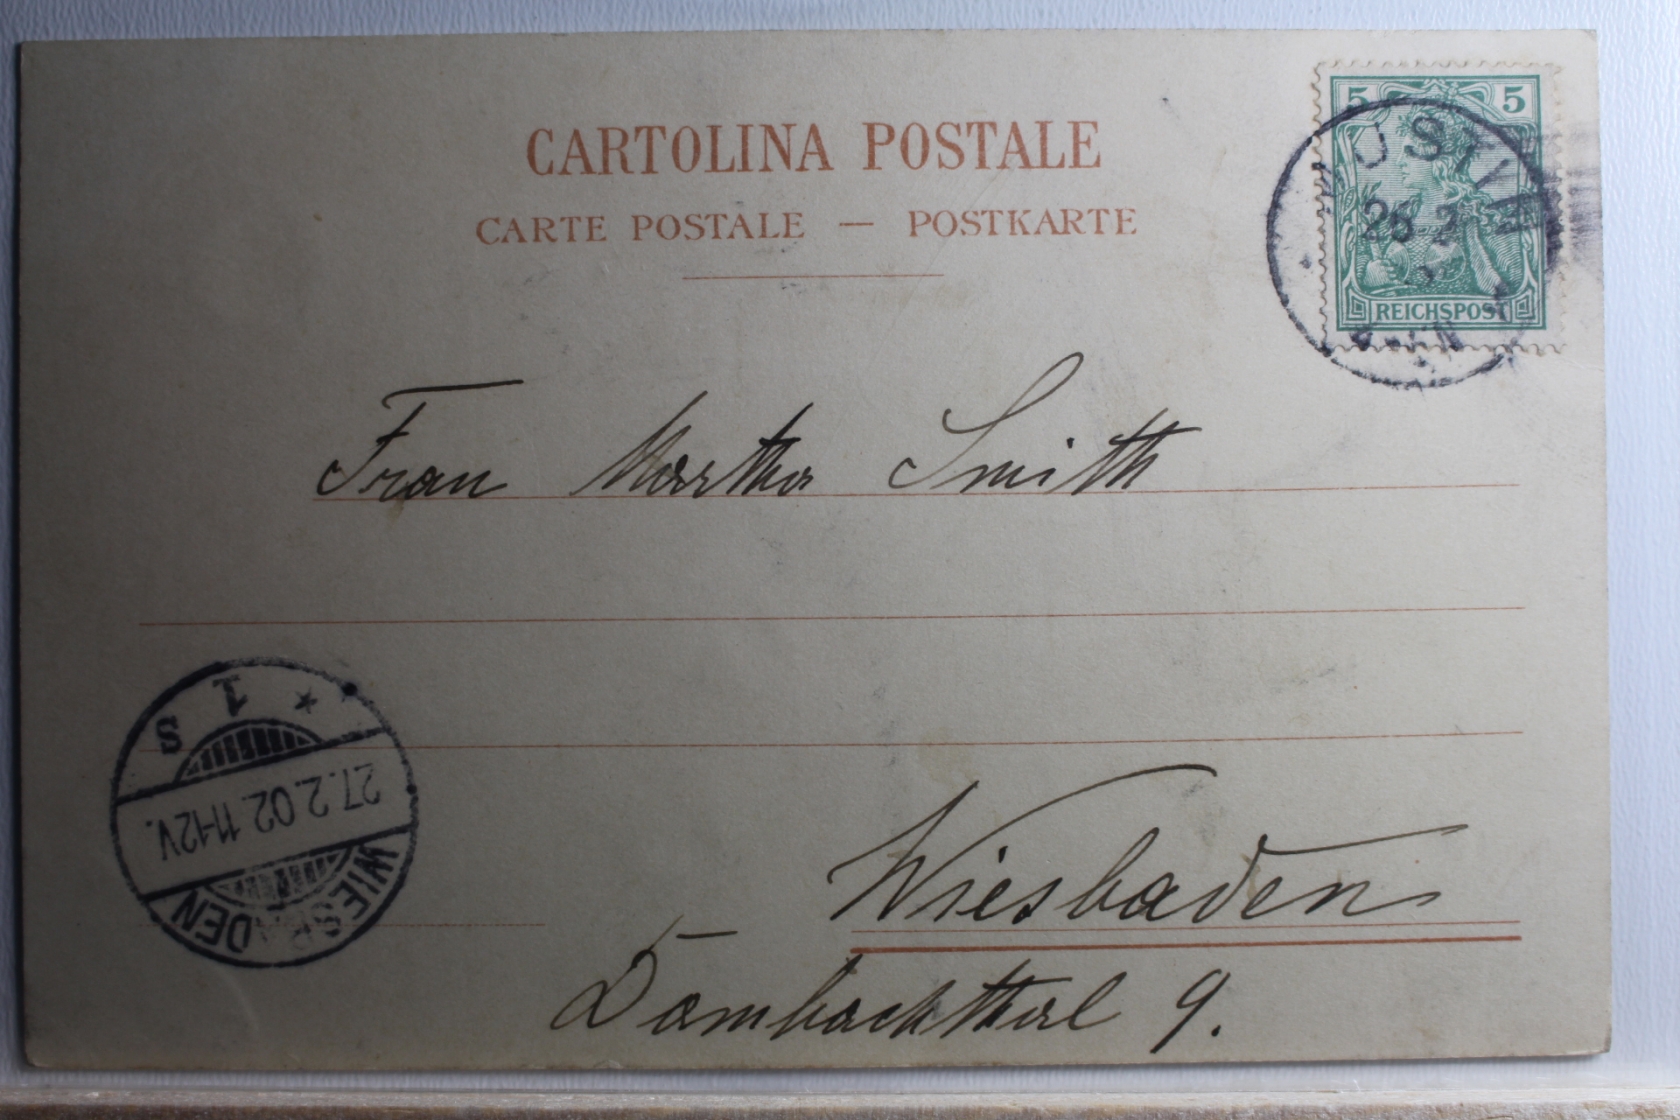 CARTOLINA POSTALE
CARTE POSTALE — POSTKARTE
5 5
REICHSPOST
26 2
Frau Martha Smith
Wiesbaden
Dambachthal 9.
* 1 S
27.2.02. 11-12V.
WIESBADEN